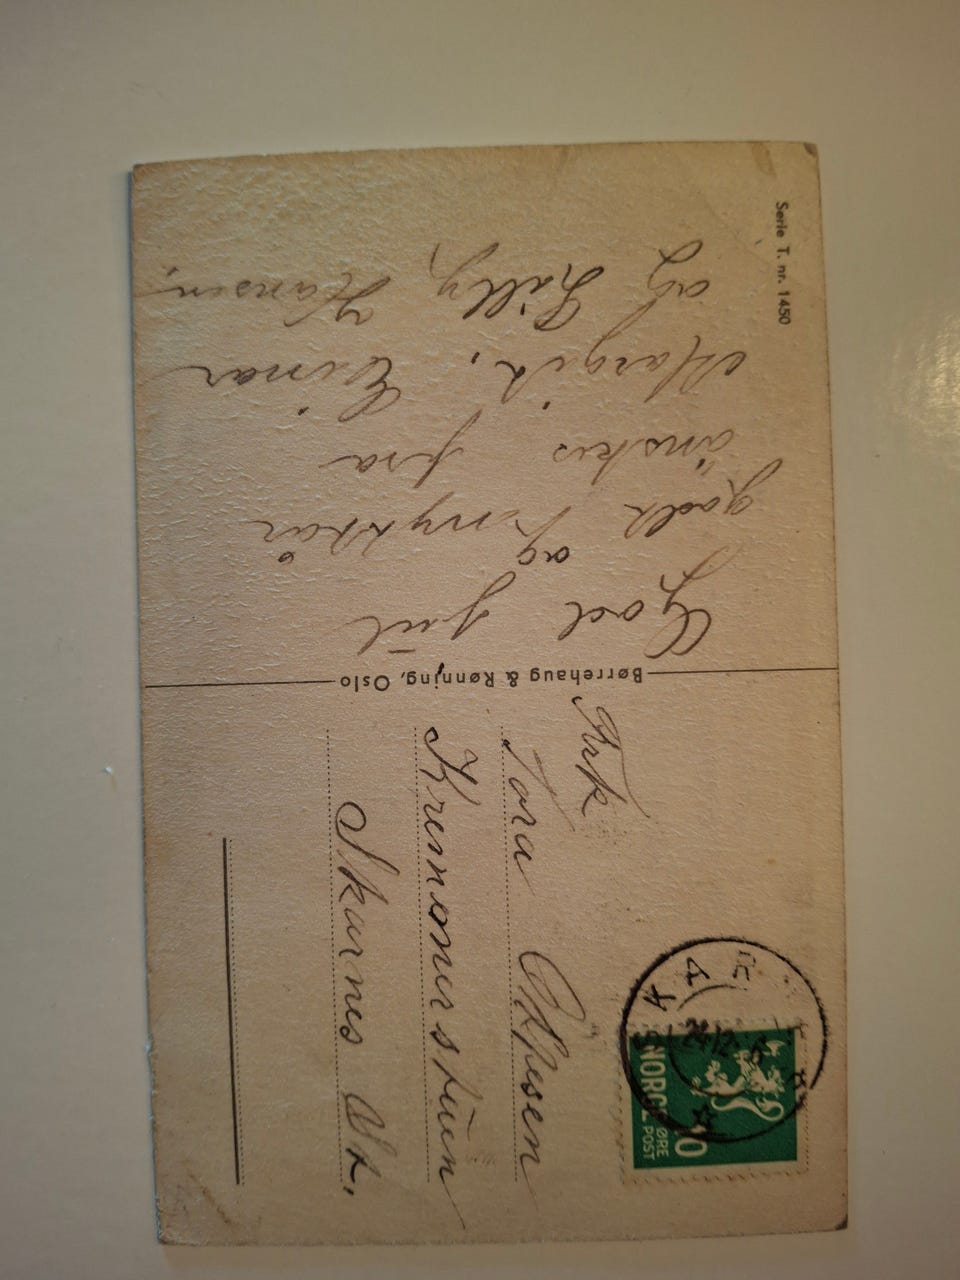 God jul
og
godt nyttår
ønskes fra
Margit, Einar
og Lilly Hansen.
Serie T. nr. 1450
Børrehaug & Rønning, Oslo
Frk
Tora
Skarnes St.
NORGE
10
ØRE
POST
24 12